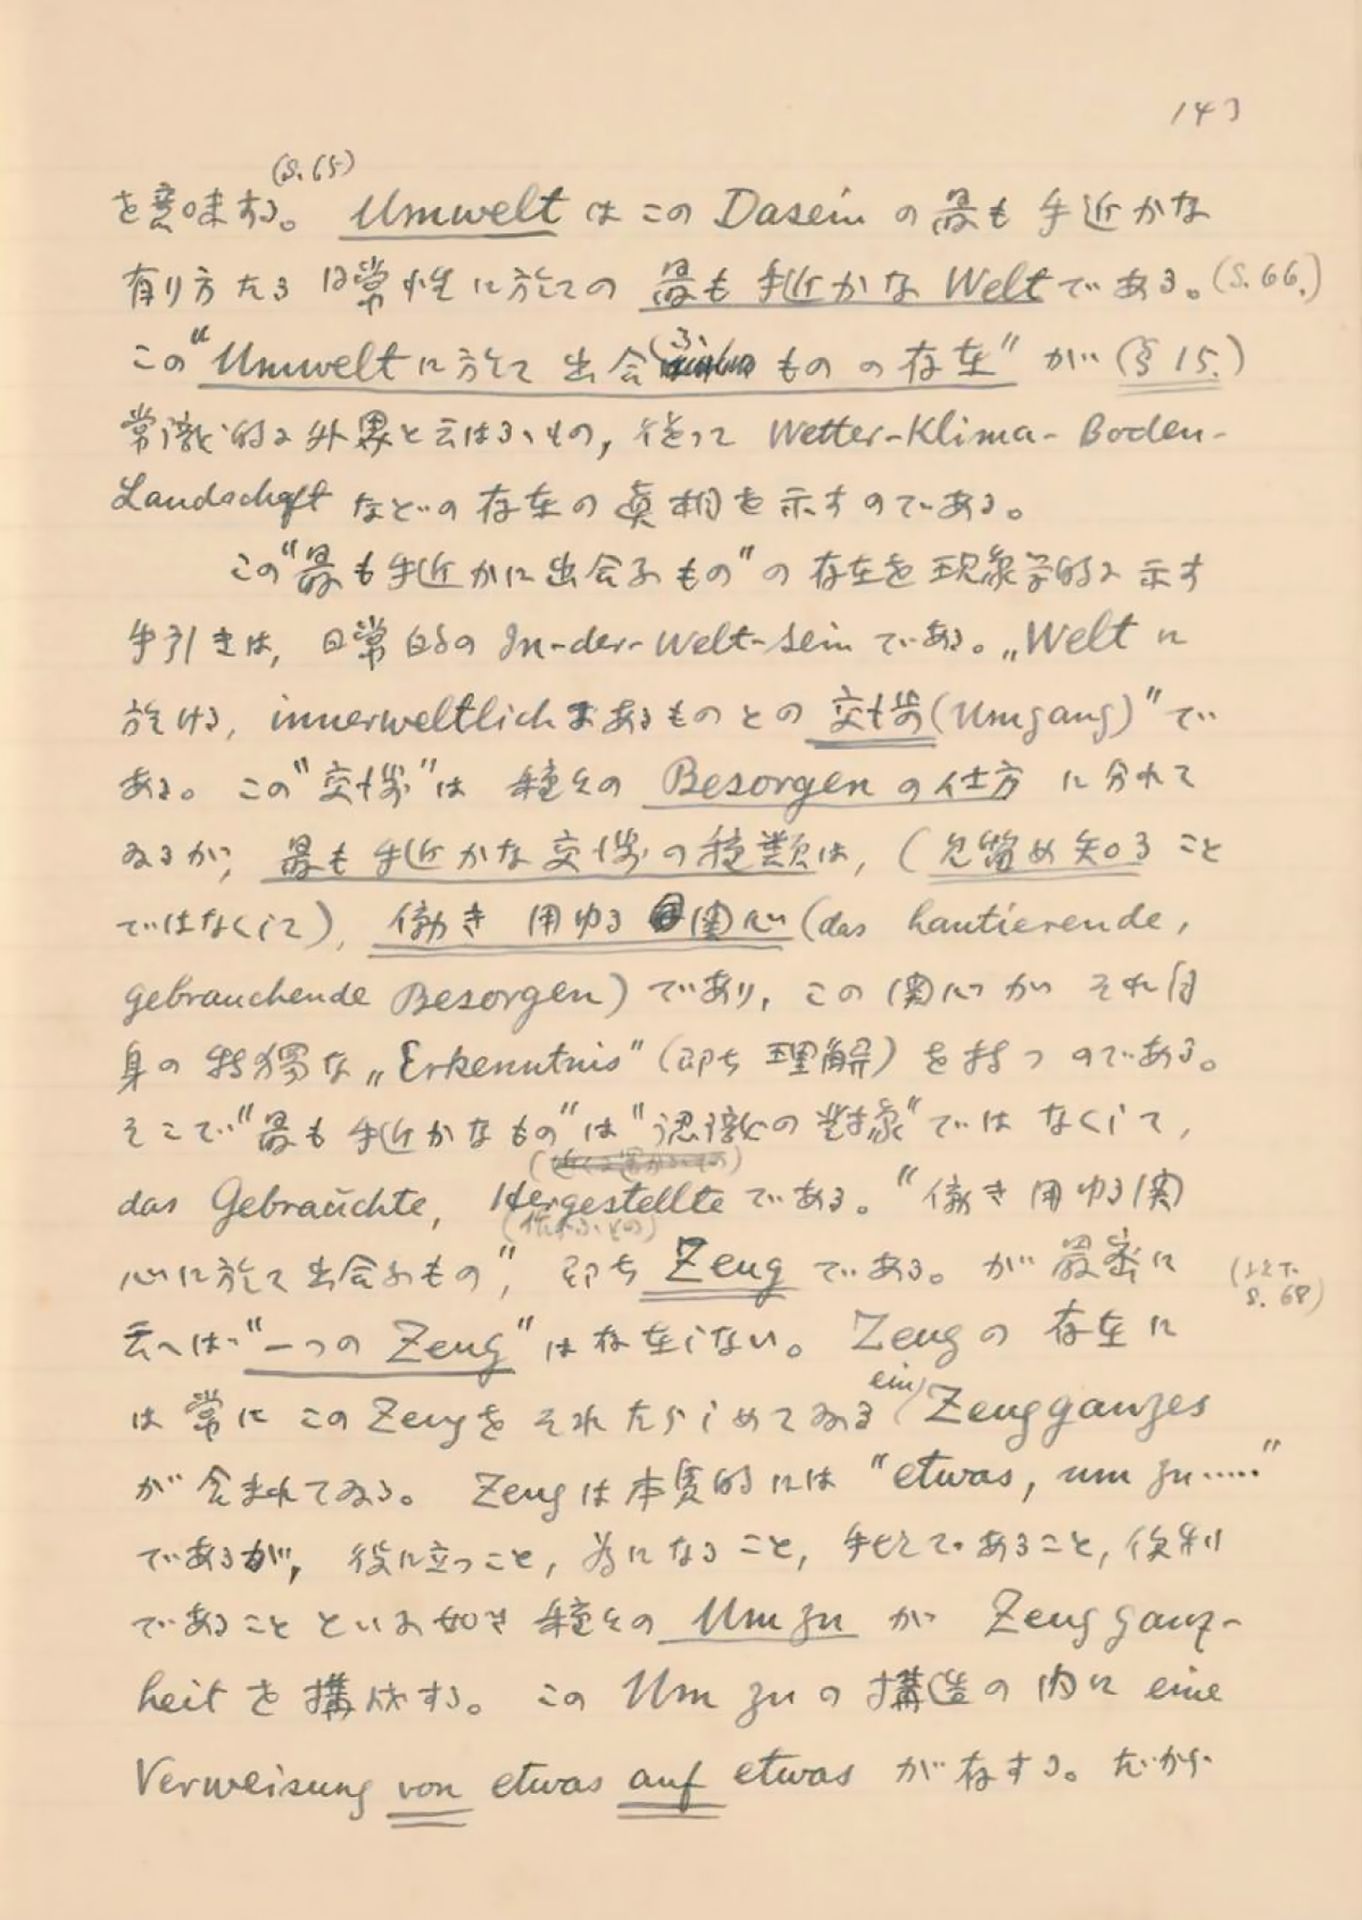 143
(S.65)
を意味する。 Umwelt はこの Dasein の最も手近かな
有り方たる日常性に於ての最も手近かな Welt である。(S.66.)
この“Umweltに於て出会ふものの存在”が(§15.)
常識的に外界と云はるゝもの, 従って Wetter-Klima-Boden-
Landschaft などの存在の眞相を示すのである。
この“最も手近かに出会ふもの”の存在を現象学的に示す
手引きは, 日常的の In-der-Welt-sein である。„Welt に
於ける, innerweltlichにあるものとの交渉(Umgang)”で
ある。この“交渉”は種々の Besorgen の仕方に分れて
ゐるが, 最も手近かな交渉の種類は, (見留め知ること
ではなくして), 働き用ゆる関心(das hantierende,
gebrauchende Besorgen)であり, この関心がそれ自
身の特獨な„Erkenntnis”(即ち理解)を持つのである。
そこで“最も手近かなもの”は“認識の對象”ではなくして,
das Gebrauchte, Hergestellte である。“働き用ゆる関
(作らるゝもの)
心に於て出会ふもの”, 即ち Zeug である。が厳密に
(以下 S.68)
云へば“一つの Zeug”は存在しない。 Zeugの存在に
は常にこのZeugをそれたらしめてゐる ein Zeugganzes
が含まれてゐる。 Zeugは本質的には“etwas, um zu.....”
であるが, 役に立つこと, 為になること, 手ごろであること, 便利
であることといふ如き種々の Um zu が Zeugganz-
heit を構成する。この Um zu の構造の内に eine
Verweisung von etwas auf etwas が存する。だから